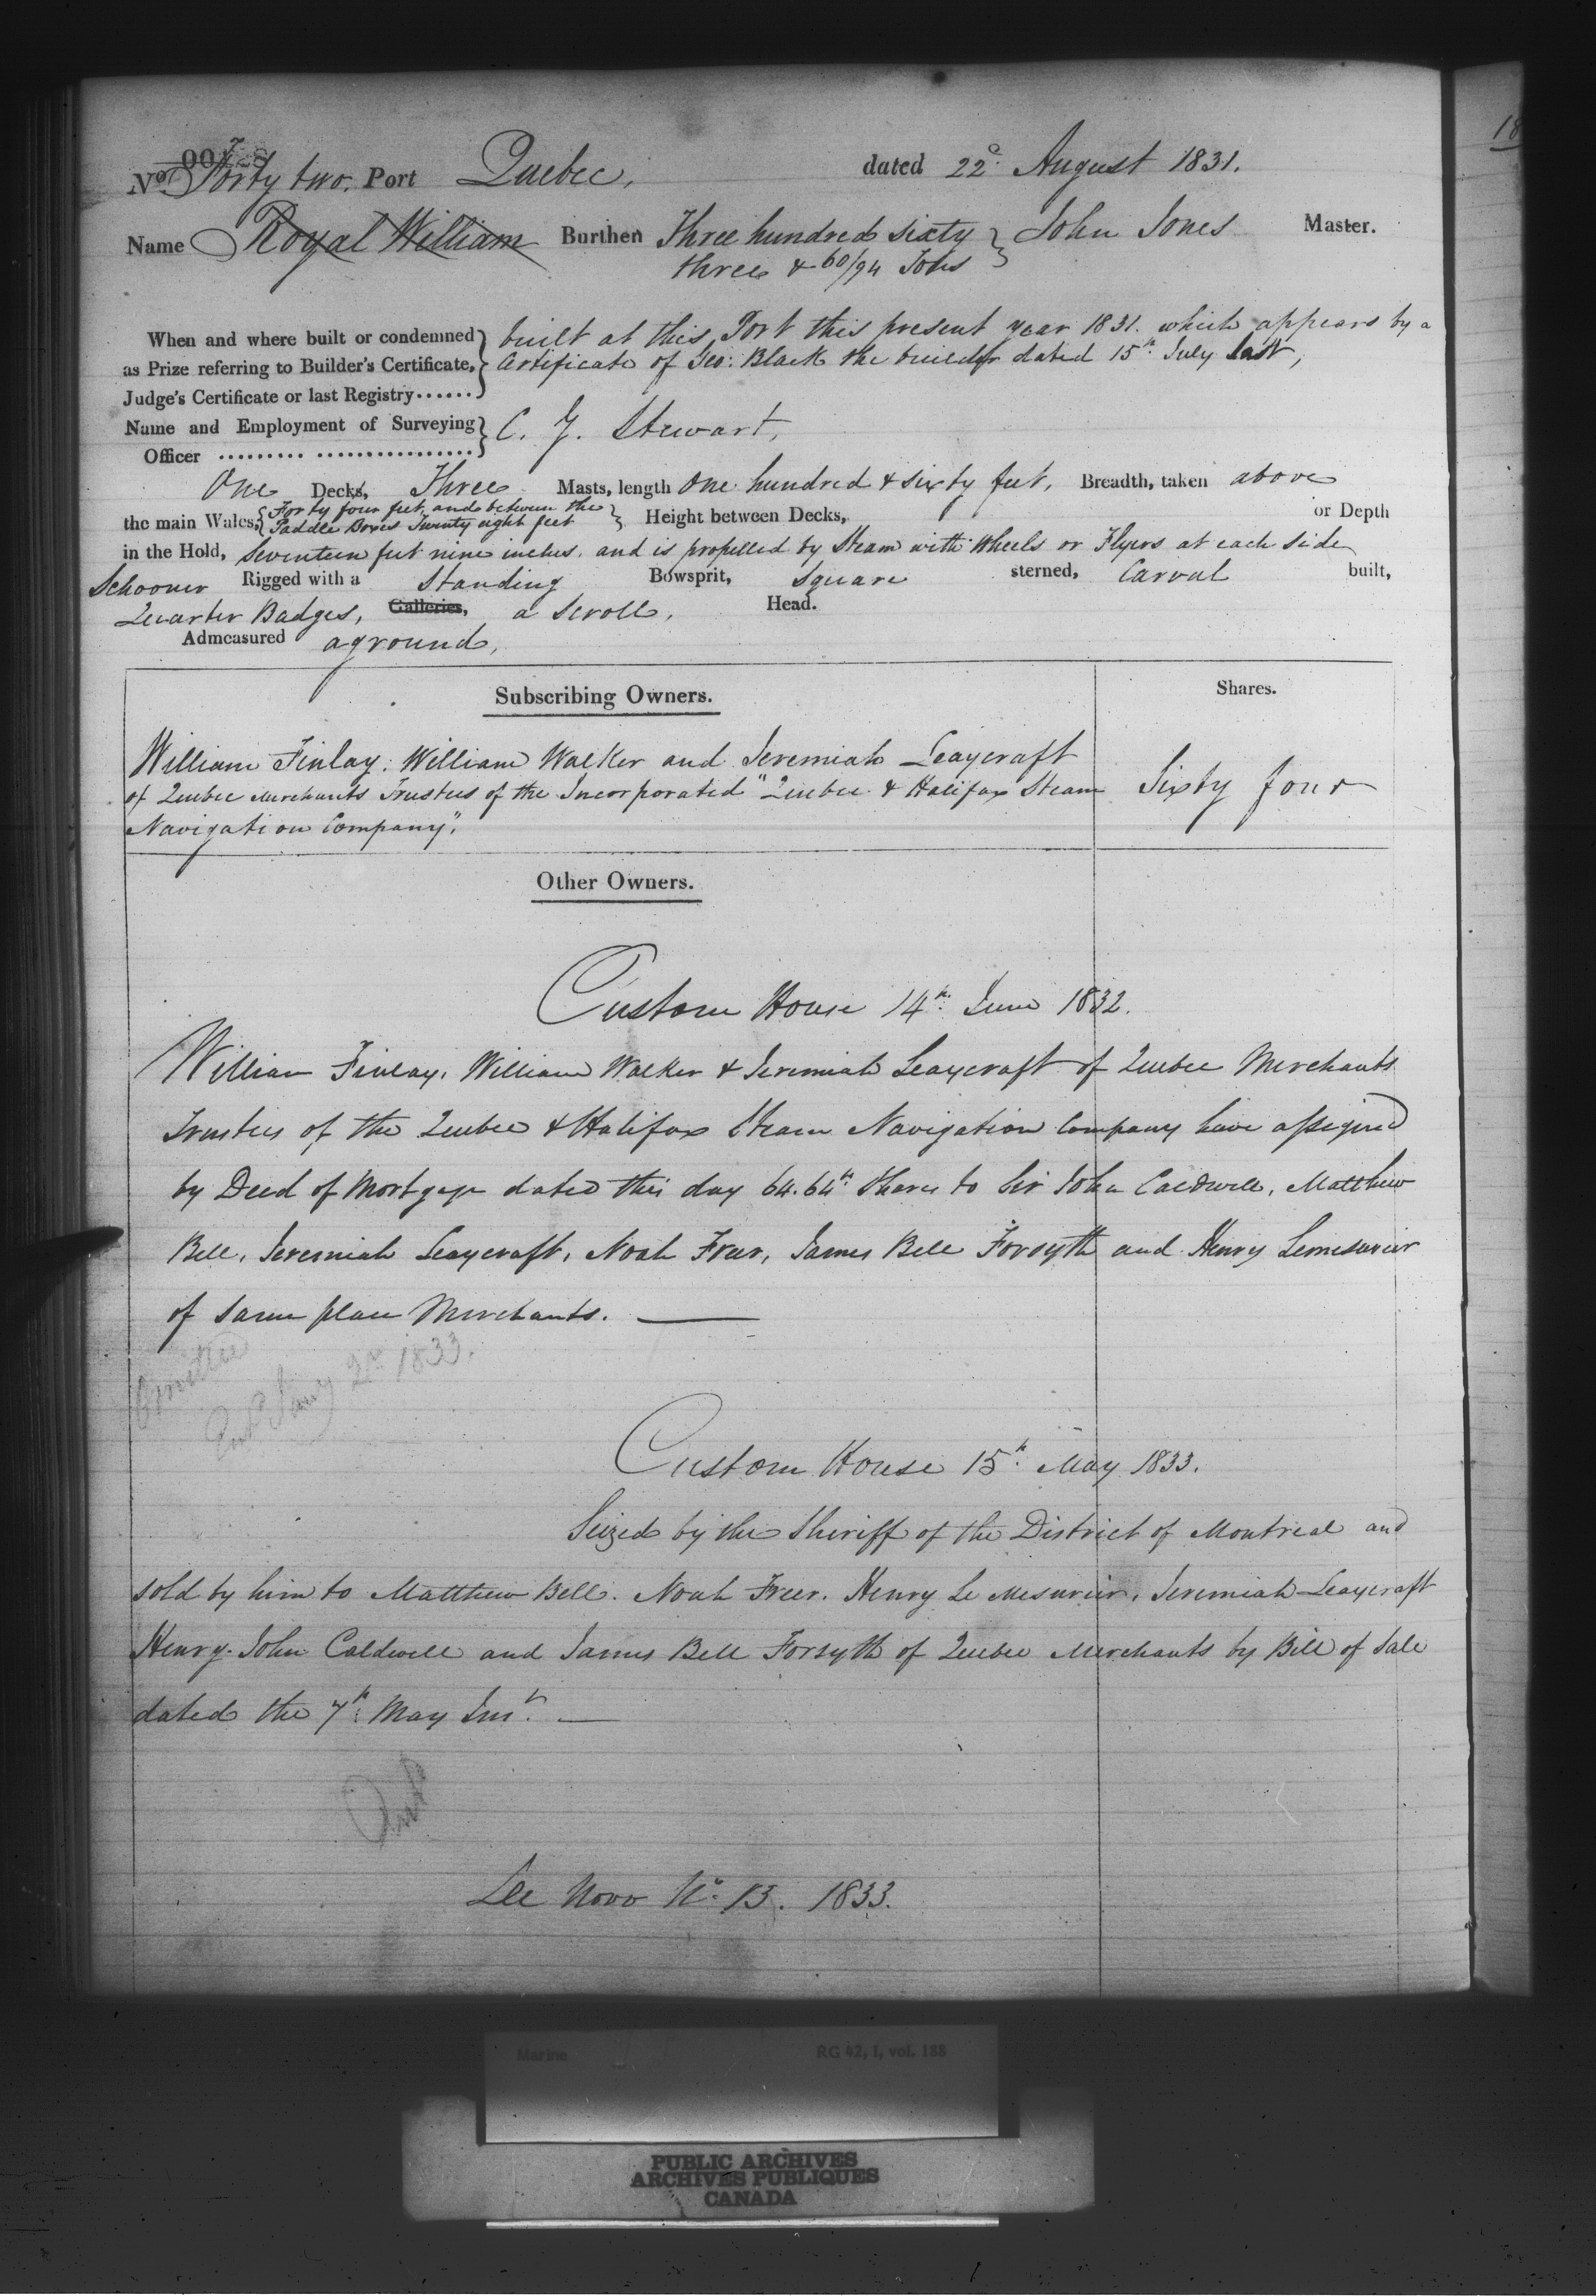 No. Forty two. Port Quebec, dated 22d. August 1831.
Name Royal William Burthen Three hundred sixty three & 60/94 Tons } John Jones Master.
When and where built or condemned } built at this Port this present year 1831. which appears by a
as Prize referring to Builder's Certificate, } Certificate of Geo: Black the builder dated 15th. July last,
Judge's Certificate or last Registry......
Name and Employment of Surveying } C. G. Stewart,
Officer ......... .................
One Decks, Three Masts, length One hundred & sixty feet, Breadth, taken above
the main Wales, { Forty four feet, and between the Paddle Boxes Twenty eight feet } Height between Decks, or Depth
in the Hold, Seventeen feet nine inches, and is propelled by Steam with Wheels or Flyers at each side
Schooner Rigged with a Standing Bowsprit, Square sterned, Carvel built,
Quarter Badges, Galleries, a Scroll, Head.
Admeasured aground,
Subscribing Owners. Shares.
William Finlay. William Walker and Jeremiah Leaycraft
of Quebec Merchants Trustees of the Incorporated "Quebec & Halifax Steam Sixty four
Navigation Company".
Other Owners.
Custom House 14th. June 1832.
William Finlay, William Walker & Jeremiah Leaycraft of Quebec Merchants
Trustees of the Quebec & Halifax Steam Navigation Company have assigned
by Deed of Mortgage dated this day 64.64th. Shares to Sir John Caldwell, Matthew
Bell, Jeremiah Leaycraft, Noah Freer, James Bell Forsyth and Henry Lemesurier
of same place Merchants.
Jany 2d 1833.
Custom House 15th. May 1833.
Seized by the Sheriff of the District of Montreal and
sold by him to Matthew Bell. Noah Freer. Henry Le Mesurier, Jeremiah Leaycraft
Henry John Caldwell and James Bell Forsyth of Quebec Merchants by Bill of Sale
dated the 7th. May Inst.
De Novo No. 13. 1833.
Marine RG 42, I, vol. 188
PUBLIC ARCHIVES
ARCHIVES PUBLIQUES
CANADA
18